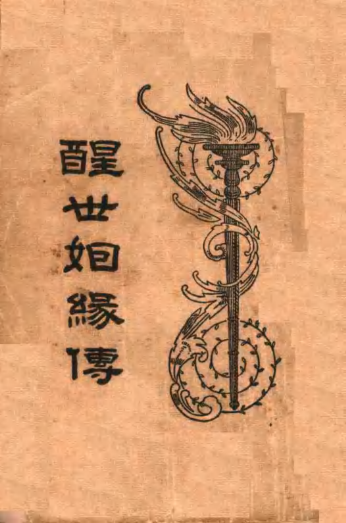 醒世姻緣傳